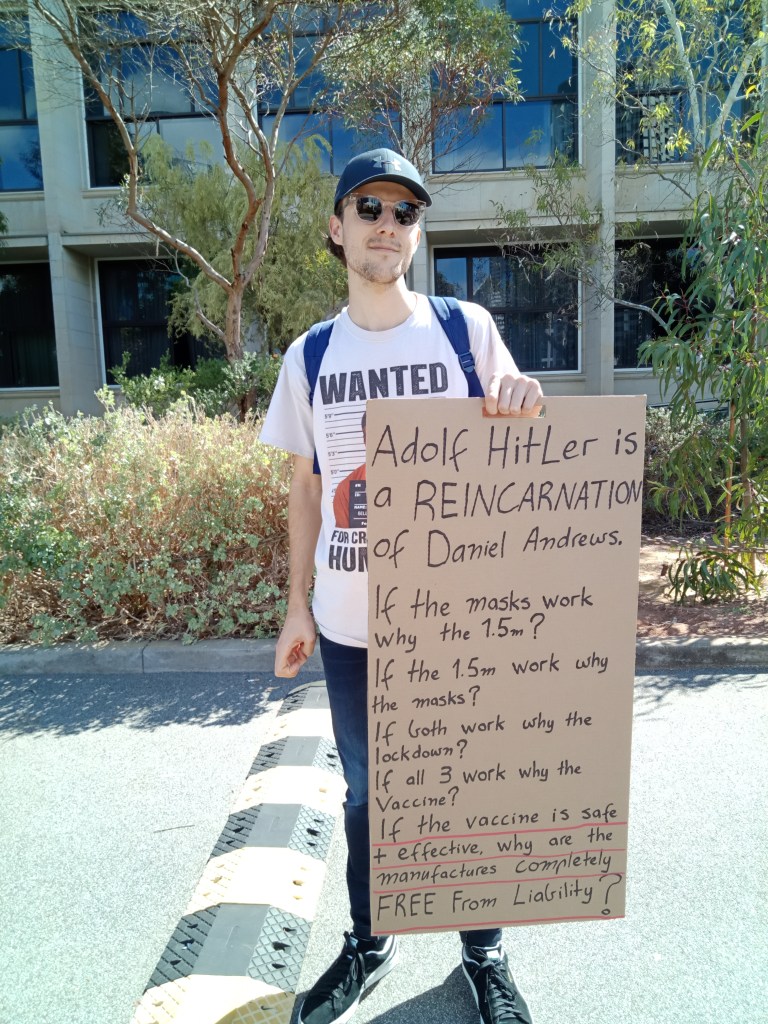 WANTED
FOR CR
HUM
Adolf HitLer is
a REINCARNATION
of Daniel Andrews.
If the masks work
why the 1.5m?
If the 1.5m work why
the masks?
If both work why the
lockdown?
If all 3 work why the
Vaccine?
If the vaccine is safe
+ effective, why are the
manufactures completely
FREE From Liability?